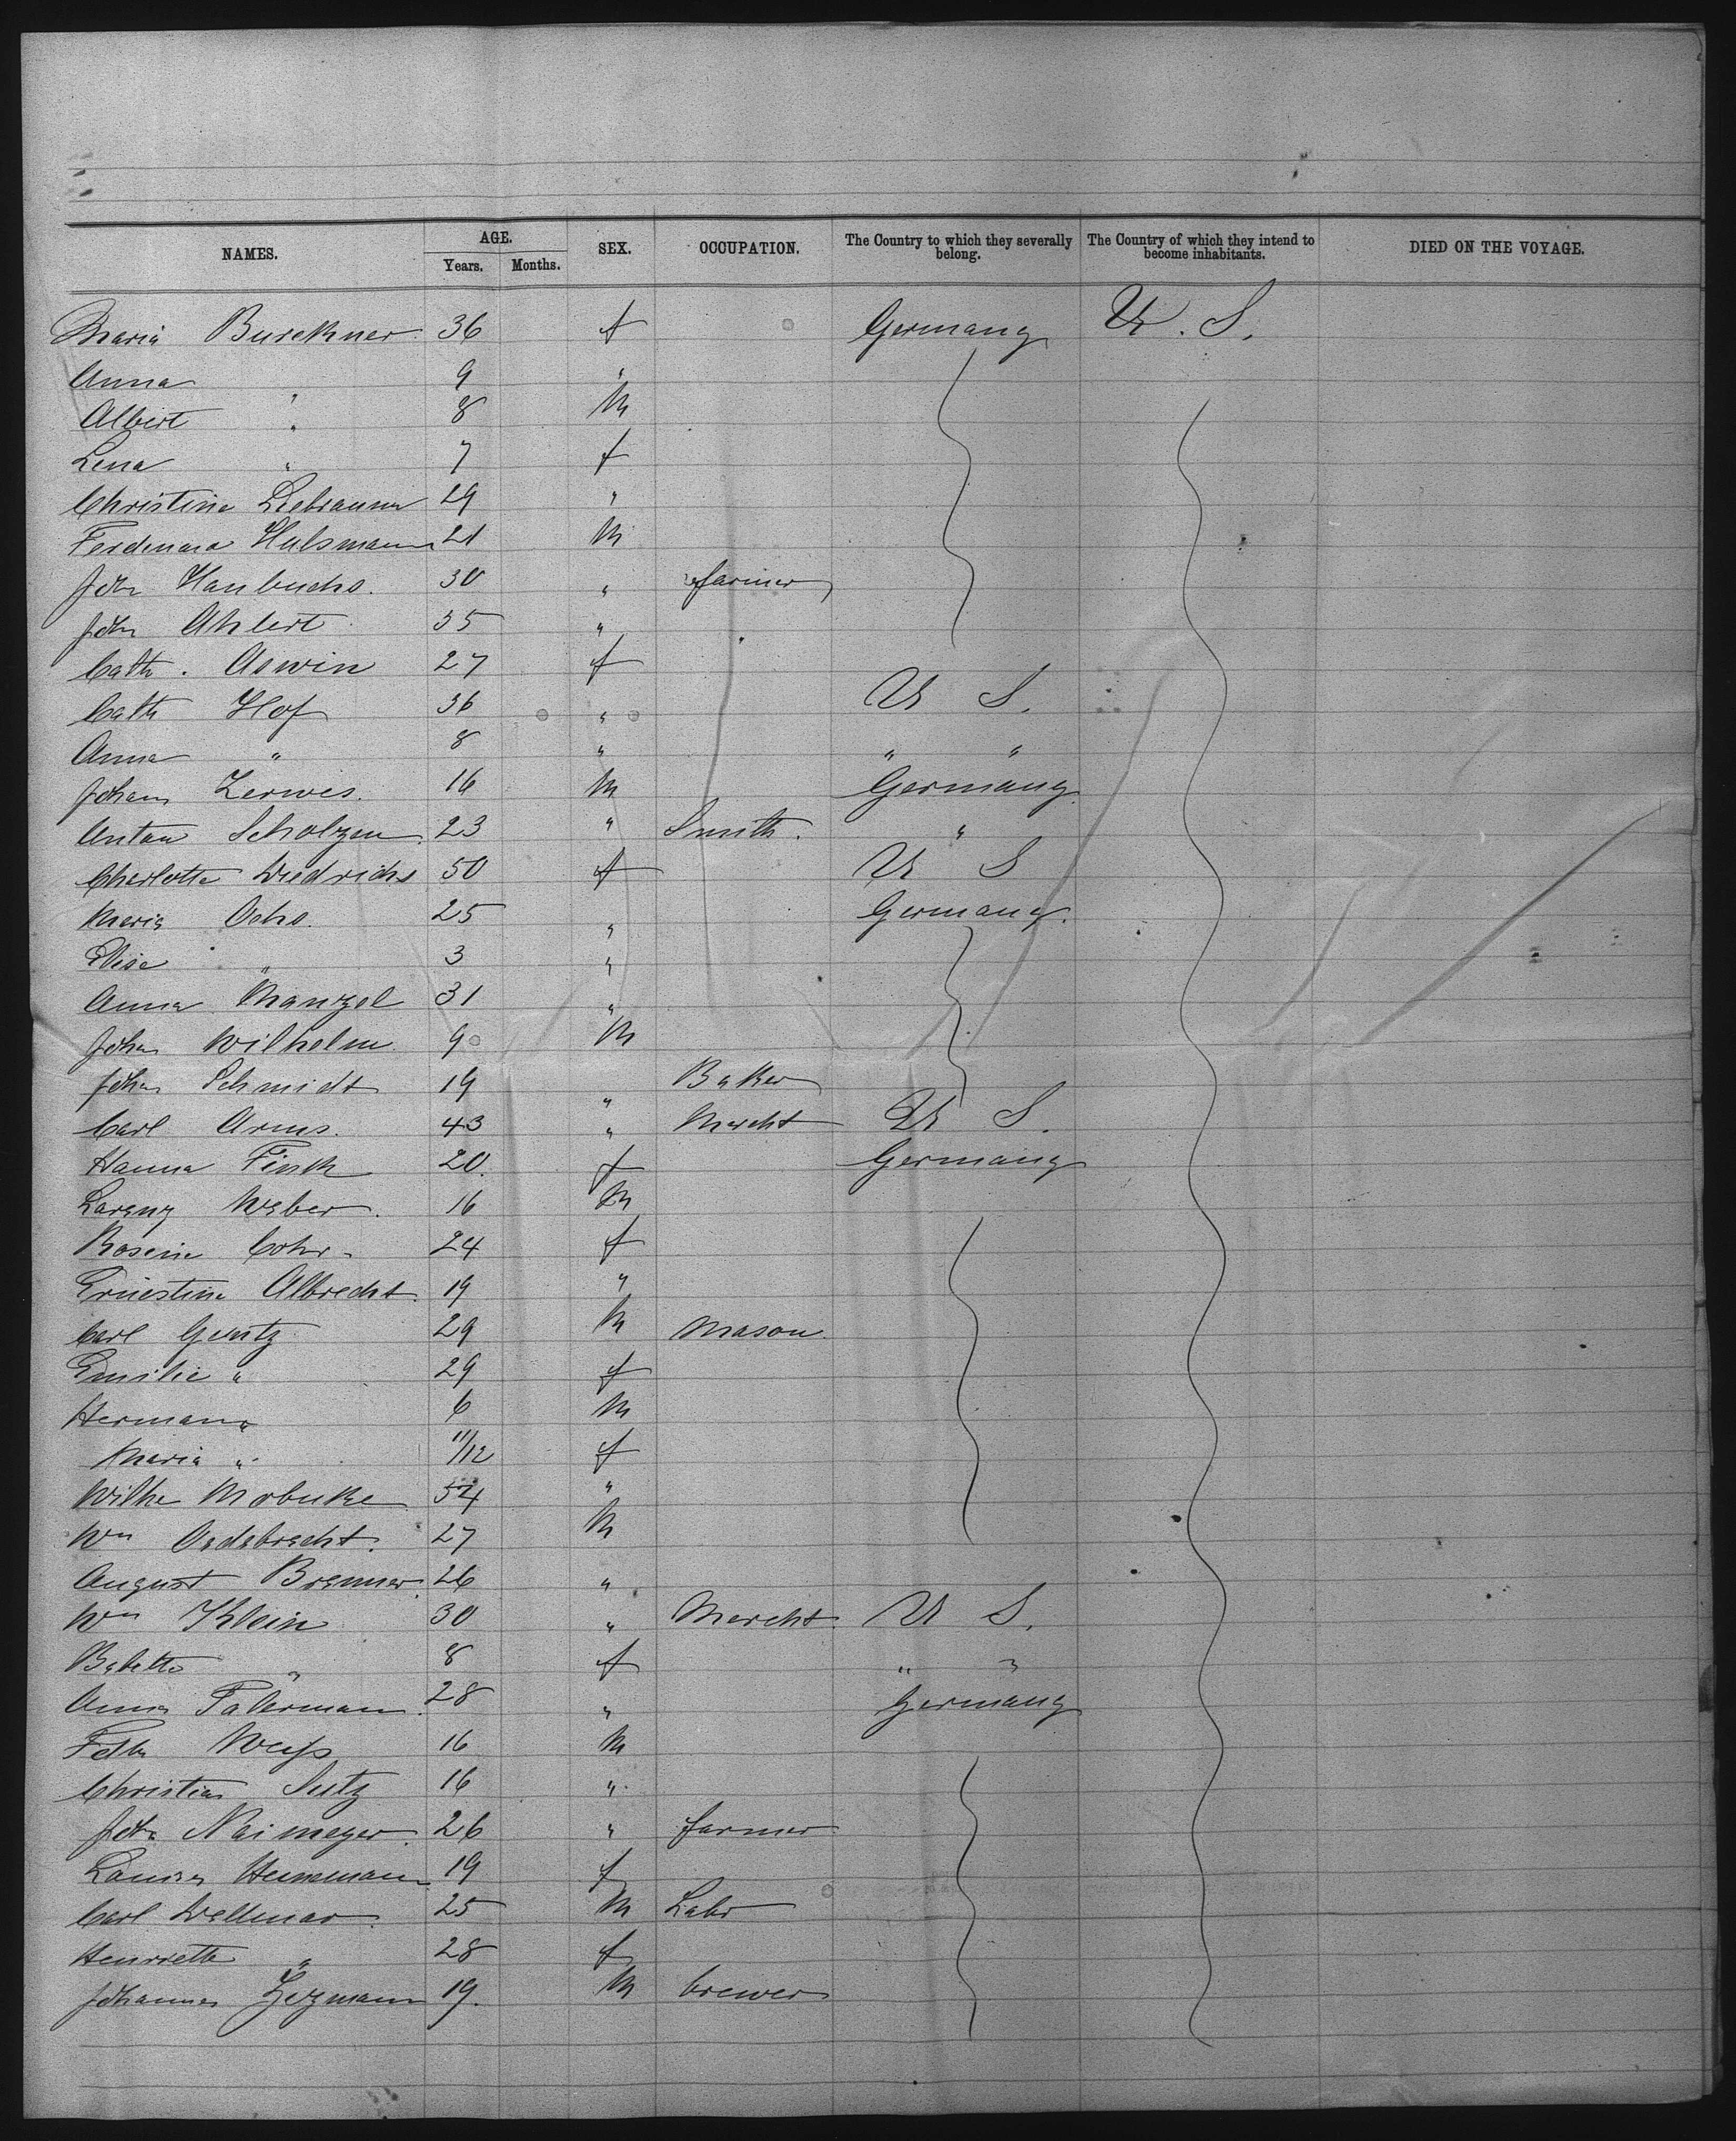 NAMES. AGE. SEX. OCCUPATION. The Country to which they severally belong. The Country of which they intend to become inhabitants. DIED ON THE VOYAGE.
Years. Months.
Maria Burckner 36 f Germany U. S.
Anna " 9 "
Albert " 8 M
Lena " 7 f
Christine 29 "
Ferdinand Hulsmann 21 M
Joh Haubuchs. 30 " farmer
Joh Ahlert 35 "
Cath. Aswin 27 f
Cath Hof 36 " U S.
Anna " 8 " " "
Johann Zerwes. 16 M Germany
Anton Scholzen 23 " Smith. "
Charlotte Diedrichs 50 f U S
Maria Ochs. 25 " Germany.
Elise " 3 "
Anna Manzel 31 "
Johan Wilhelm 9 M
Johan Schmidt 19 " Baker
Carl Arms. 43 " Mercht U S.
Hanna Fink 20. f Germany
Lorenz Weber. 16 M
Rosine Cohr. 24 f
Ernestine Albrecht. 19 "
Carl Gentz 29 M Mason
Emilie " 29 f
Herman " 6 M
Maria " 11/12 f
Wilhe Mobuke 54 "
Wm Oedebrecht. 27 M
August Brenner 26 "
Wm Klein 30 " Mercht. U S.
Babette " 8 f " "
Anna Paterman. 28 " Germany
Weiss 16 M
Christian Sutz 16 "
Joh Naimeyer. 26 " farmer
Louise Hunemann 19 f
Carl Wellmar. 25 M Labr
Henriette " 28 f
Johannes Zezmann 19. M brewer